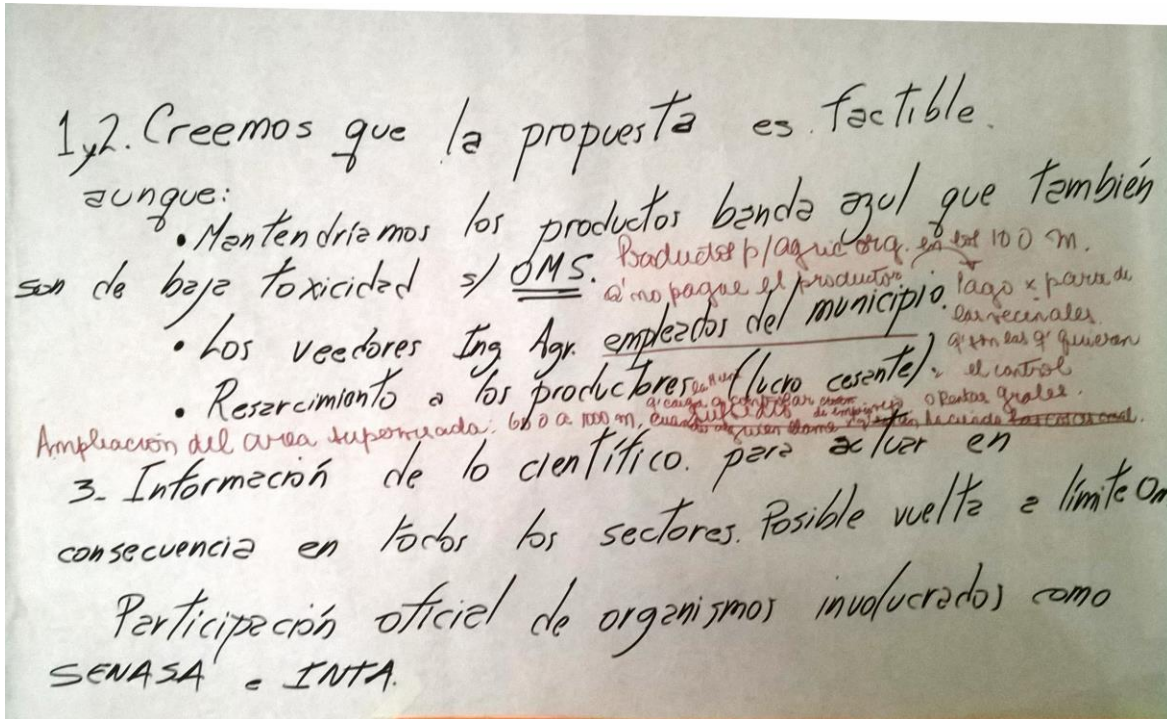 1y2. Creemos que la propuesta es factible.
aunque:
• Mantendríamos los productos banda azul que también
son de baja toxicidad s/ OMS.
Productos p/agric org. en los 100 m.
q' no pague el productor.
• Los veedores Ing Agr. empleados del municipio.
Pago x parte de
las vecinales
q' son las q' quieran
el control
o Rentas grales.
• Resarcimiento a los productores (lucro cesante).
Ampliación del area supervisada: a 1000 m,
3- Información de lo científico. para actuar en
consecuencia en todos los sectores. Posible vuelta a límite 0m
Participación oficial de organismos involucrados como
SENASA e INTA.